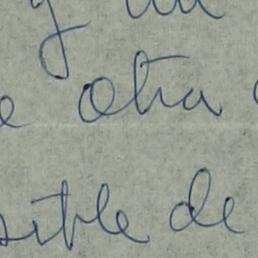 y un
e otra
sible de